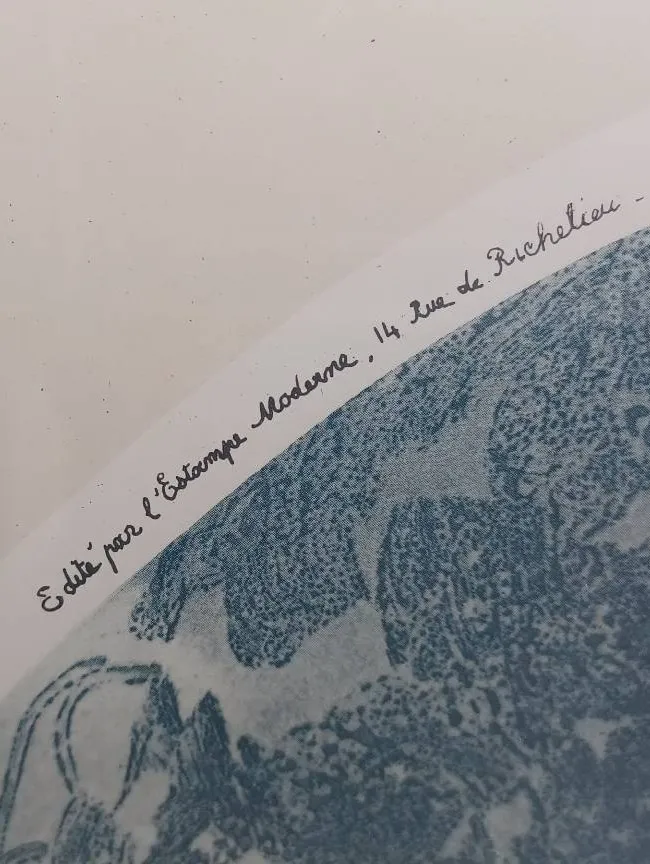 Edité par l'Estampe Moderne, 14 Rue de Richelieu -